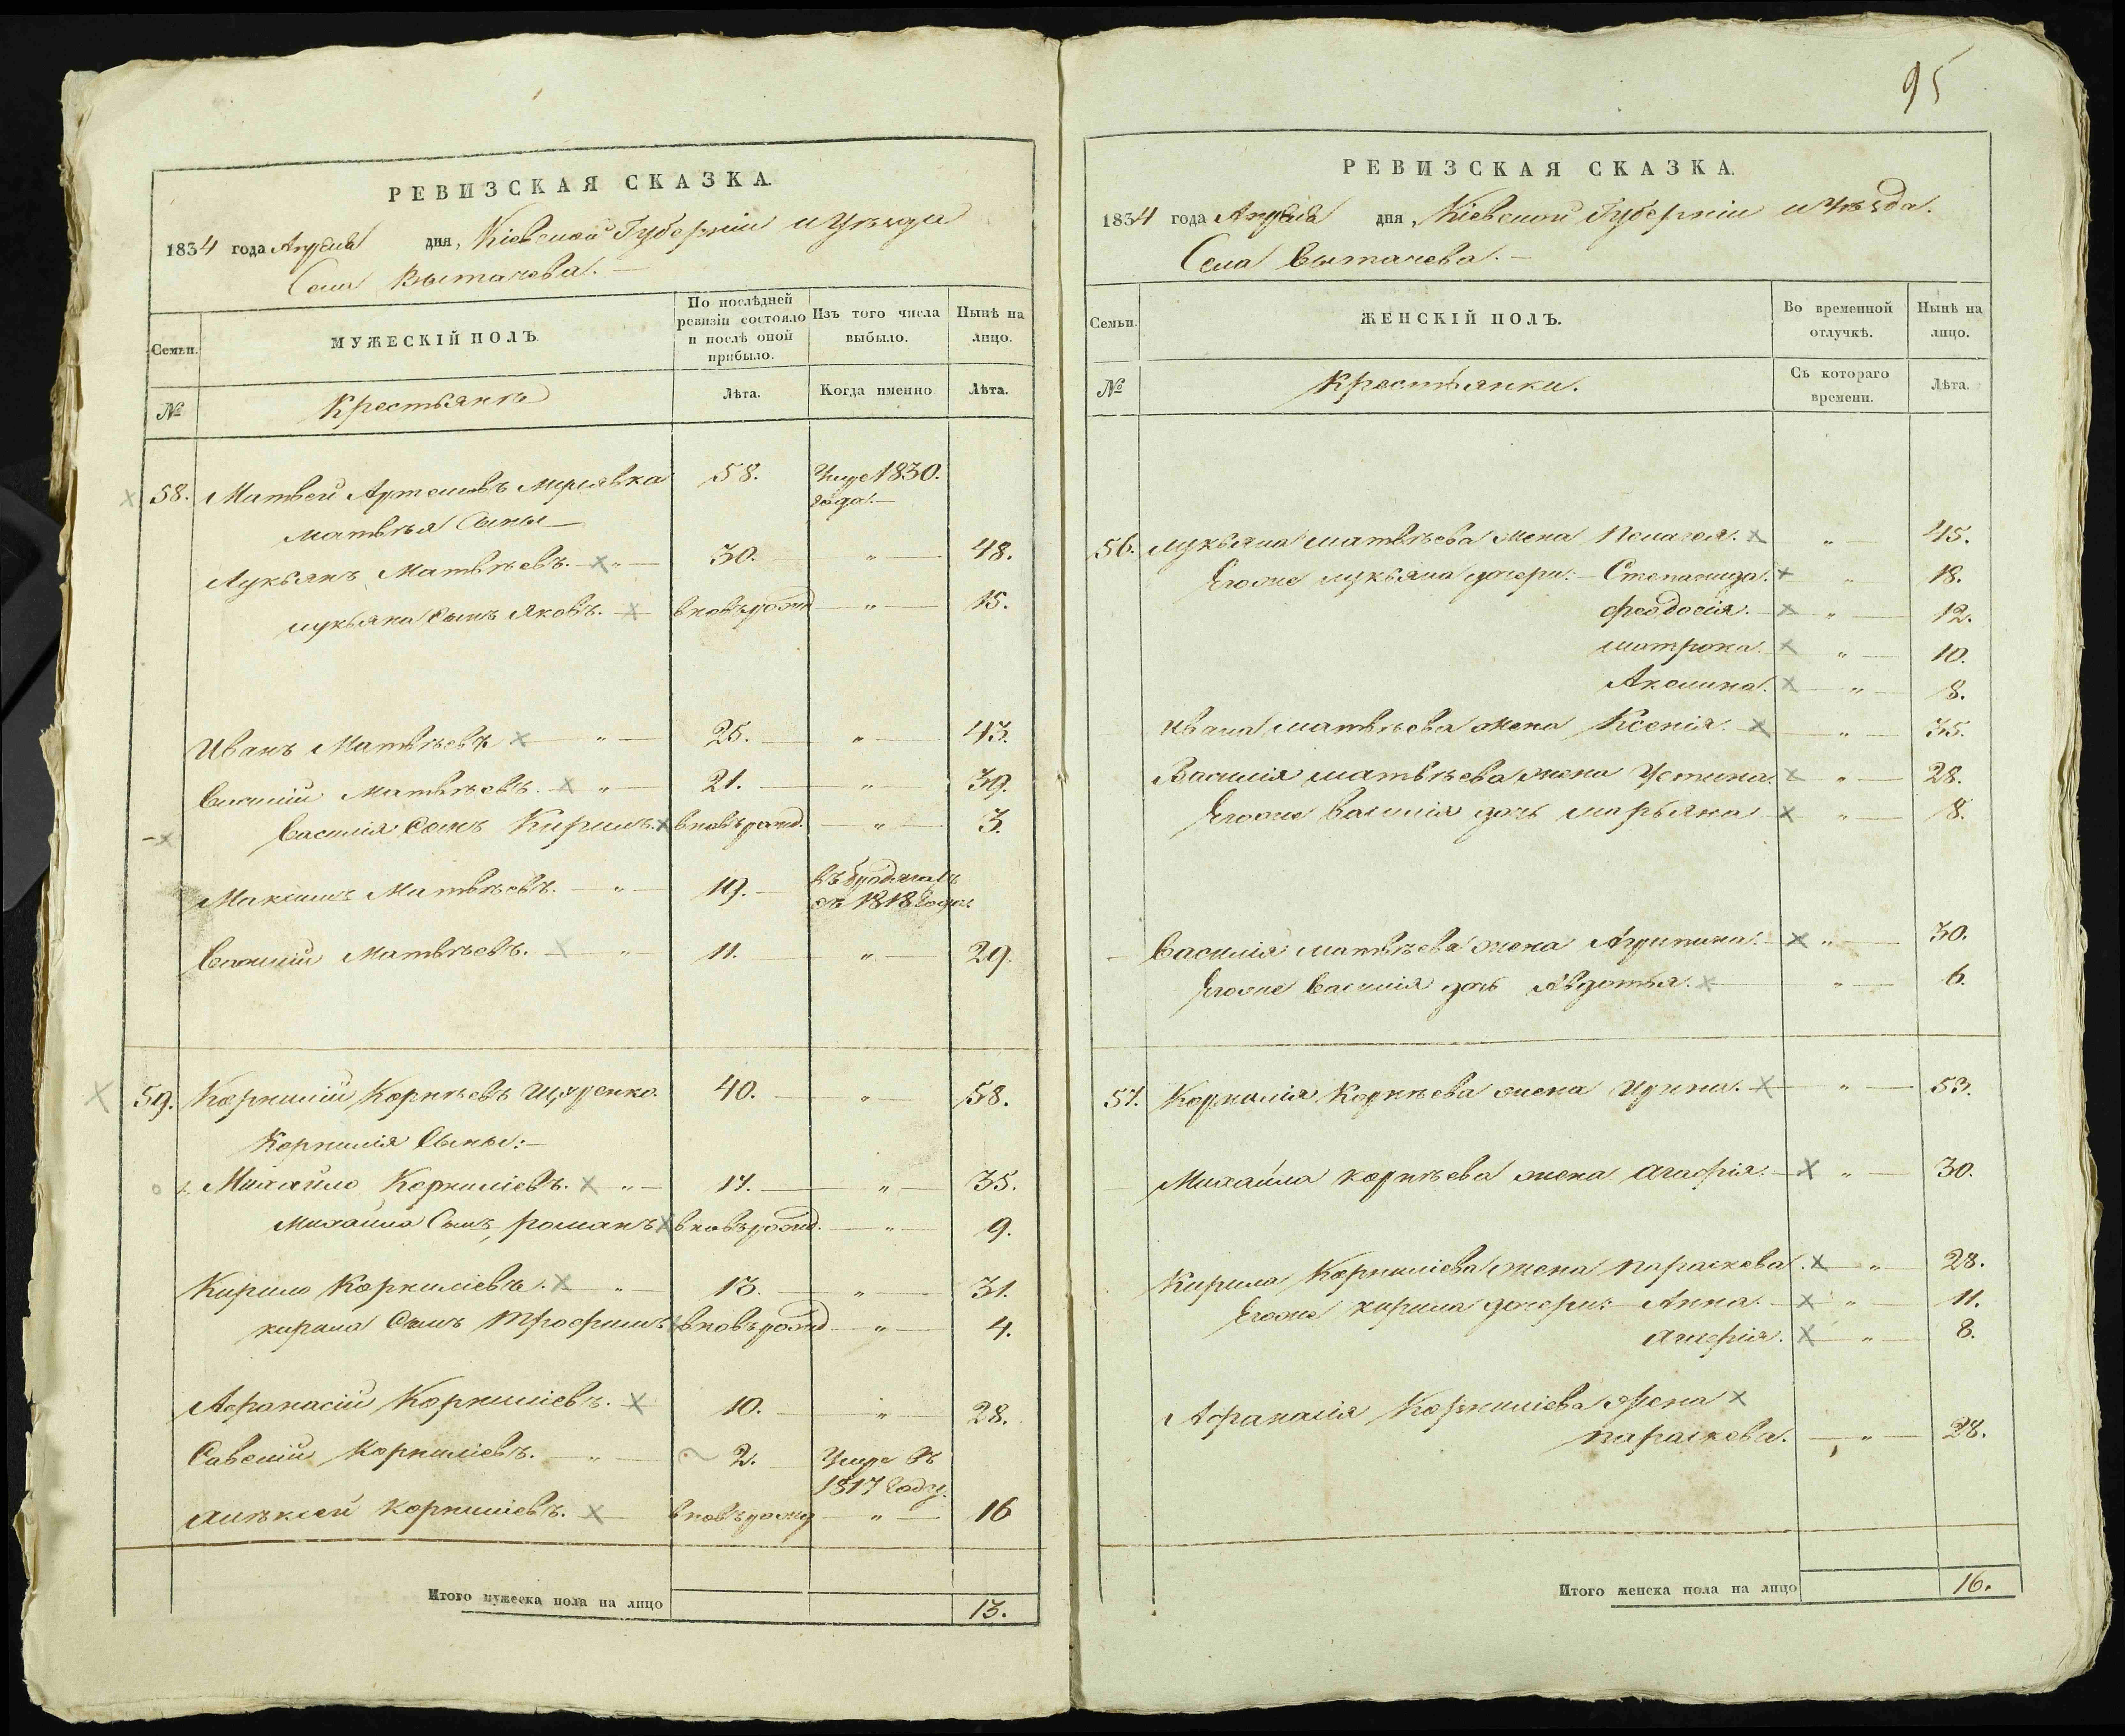 РЕВИЗСКАЯ СКАЗКА.
1834 года Апреля дня, Кіевской Губерніи и Уѣзда
Села Вытачева. —
Семьи.
МУЖЕСКІЙ ПОЛЪ.
По послѣдней ревизіи состояло и послѣ оной прибыло.
Изъ того числа выбыло.
Нынѣ на лицо.
№
Крестьянъ
Лѣта.
Когда именно
Лѣта.
58. Матвей Артемовъ 58. Умре 1830.
года. —
Матвѣя Сыны —
Лукьянъ Матвѣевъ. 30. „ 48.
Лукьяна Сынъ Яковъ. вновь рожд „ 15.
Иванъ Матвѣевъ „ 25. „ 43.
Василій Матвѣевъ. „ 21. „ 39.
Василія Сынъ Кирилъ. вновь рожд. „ 3.
Максимъ Матвѣевъ. „ 19. въ бродягахъ
съ 1818 года
Василій Матвѣевъ. „ 11. „ 29.
59. Корнилій Корнѣевъ Щуренко. 40. „ 58.
Корнилія Сыны: —
Михайло Корниліевъ. „ 17. „ 35.
Михайла Сынъ, романъ вновь рожд. „ 9.
Кирило Корниліевъ. „ 13. „ 31.
кирила Сынъ Трофимъ вновь рожд „ 4.
Афанасій Корниліевъ. 10. „ 28.
Савелий Корниліевъ. „ 2. Умре въ
1817 году.
Алѣксей Корниліевъ. вновь рожд „ 16
Итого мужеска пола на лицо 13.
95
РЕВИЗСКАЯ СКАЗКА.
1834 года Апреля дня, Кіевской Губерніи и Уѣзда.
Села Вытачева. —
Семьи.
ЖЕНСКІЙ ПОЛЪ.
Во временной отлучкѣ.
Нынѣ на лицо.
№
Крестьянки.
Съ котораго времени.
Лѣта.
56. Лукьяна Матвѣева жена Пелагея. „ 45.
Егоже Лукьяна дочери: — Степанида. „ 18.
Феодосія. „ 12.
Матрона. „ 10.
Акелина. „ 8.
Ивана Матвѣева жена Ксенія. „ 35.
Василія Матвѣева жена Устина. „ 28.
Егоже Василія дочь Марьяна „ 8.
Василія Матвѣева жена Агрипина. „ 30.
Егоже Василія дочь Авдотья. „ 6.
57. Корнилія Корнѣева жена Ирина. „ 53.
Михайла корнѣева жена Агафія. „ 30.
Кирила Корниліева жена параскева. „ 28.
Егоже кирила дочери: Анна. „ 11.
Агафія. „ 8.
Афанасія Корниліева жена
параскева. „ 28.
Итого женска пола на лицо 16.